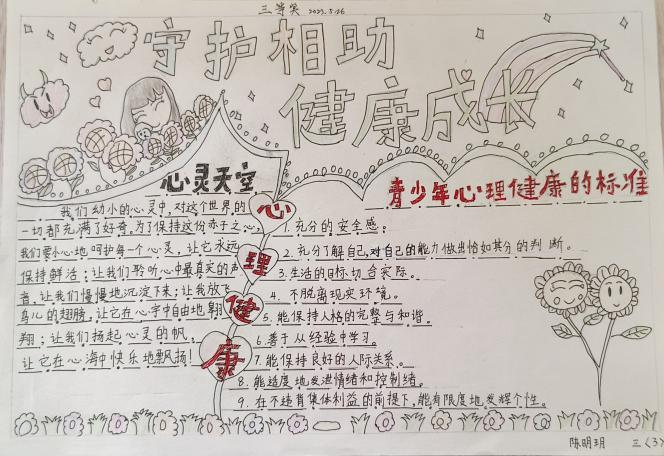 三等奖 2023.5.26
守护相助
健康成长
心灵天空
我们幼小的心灵中，对这个世界的
一切都充满了好奇，为了保持这份赤子之心，
我们要小心地呵护每一个心灵，让它永远
保持鲜活；让我们聆听心中最真实的声
音，让我们慢慢地沉淀下来；让我放飞
鸟儿的翅膀，让它在心宇中自由地翱
翔；让我们扬起心灵的帆，
让它在心海中快乐地飘扬！
心
理
健
康
青少年心理健康的标准
1.充分的安全感；
2.充分了解自己，对自己的能力做出恰如其分的判断。
3.生活的目标切合实际。
4.不脱离现实环境。
5.能保持人格的完整与和谐。
6.善于从经验中学习。
7.能保持良好的人际关系。
8.能适度地发泄情绪和控制绪。
9.在不违背集体利益的前提下，能有限度地发挥个性。
陈明玥 三〈3〉